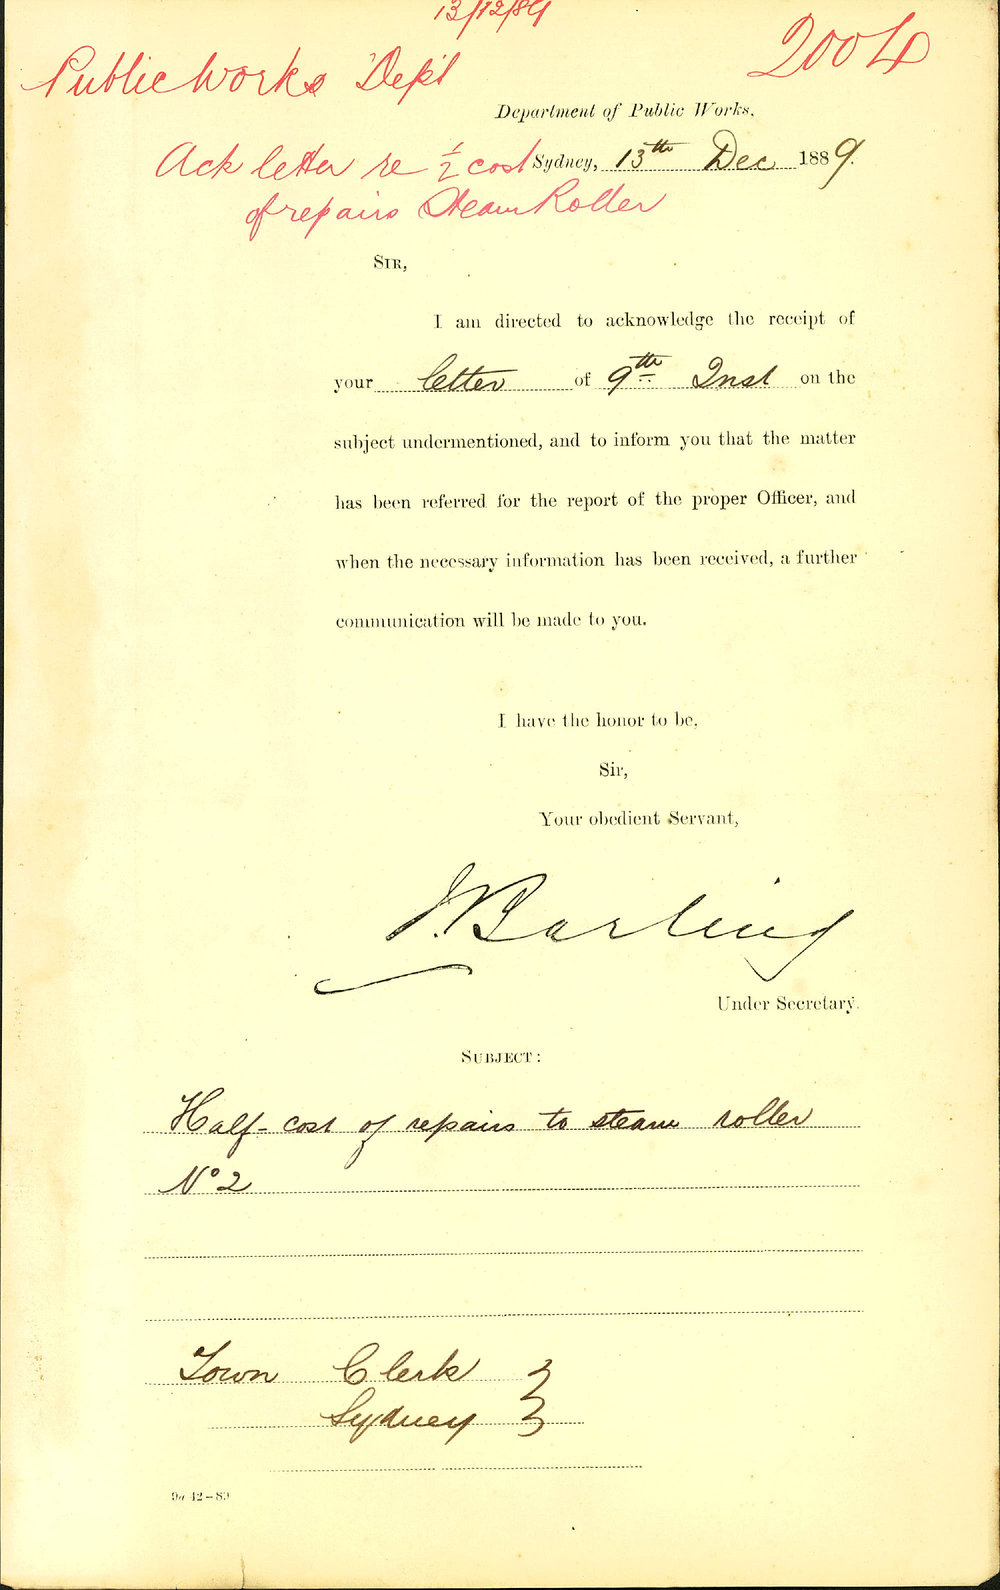 13/12/89
2004
Public Works Dept
Department of Public Works,
Ack letter re ½ cost
Sydney, 13th Dec 1889.
of repairs Steam Roller
SIR,
I am directed to acknowledge the receipt of
your letter of 9th Inst on the
subject undermentioned, and to inform you that the matter
has been referred for the report of the proper Officer, and
when the necessary information has been received, a further
communication will be made to you.
I have the honor to be,
Sir,
Your obedient Servant,
J. Barling
Under Secretary.
SUBJECT:
Half-cost of repairs to steam roller
No 2
Town Clerk
Sydney
9a 42-89